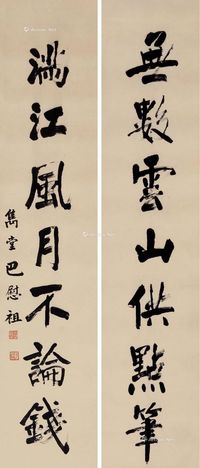 無數雲山供點筆
滿江風月不論錢
雋堂巴慰祖